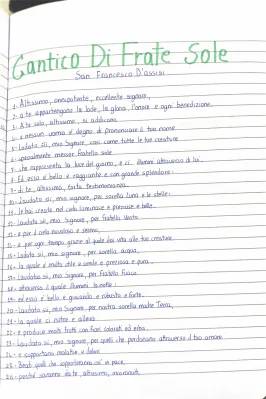 Cantico Di Frate Sole
San Francesco D'assisi
1- Altissimo, onnipotente, eccellente signore,
2- a te appartengono la lode, la gloria, l'onore e ogni benedizione.
3- A te solo, altissimo, si addicono
4- e nessun uomo è degno di pronunciare il tuo nome
5- Lodato sii, mio Signore, così come tutte le tue creature
6- specialmente messer fratello sole
7- che rappresenta la luce del giorno, e ci illumini attraverso di lui.
8- Ed esso è bello e raggiante e con grande splendore:
9- di te, altissimo, porta testimonianza.
10- Laudato sii, mio signore, per sorella luna e le stelle:
11- le hai create nel cielo luminose e preziose e belle.
12- Laudato sii, mio Signore, per fratello vento
13- e per il cielo nuvoloso e sereno,
14- e per ogni tempo, grazie al quale dai vita alle tue creature
15- Lodato sii, mio signore, per sorella acqua,
16- la quale è molto utile e umile e preziosa e pura.
17- Laudato sii, mio Signore, per fratello fuoco
18- attraverso il quale illumini la notte:
19- ed esso è bello e giocondo e robusto e forte.
20- Laudato sii, mio Signore per nostra sorella madre Terra,
21- la quale ci nutre e alleva
22- e produce molti frutti con fiori colorati ed erba.
23- Laudato sii, mio signore, per quelli che perdonano attraverso il tuo amore
24- e sopportano malattie e dolori
25- Beati quelli che sopporteranno ciò in pace,
26- perché saranno da te, altissimo, incoronati.